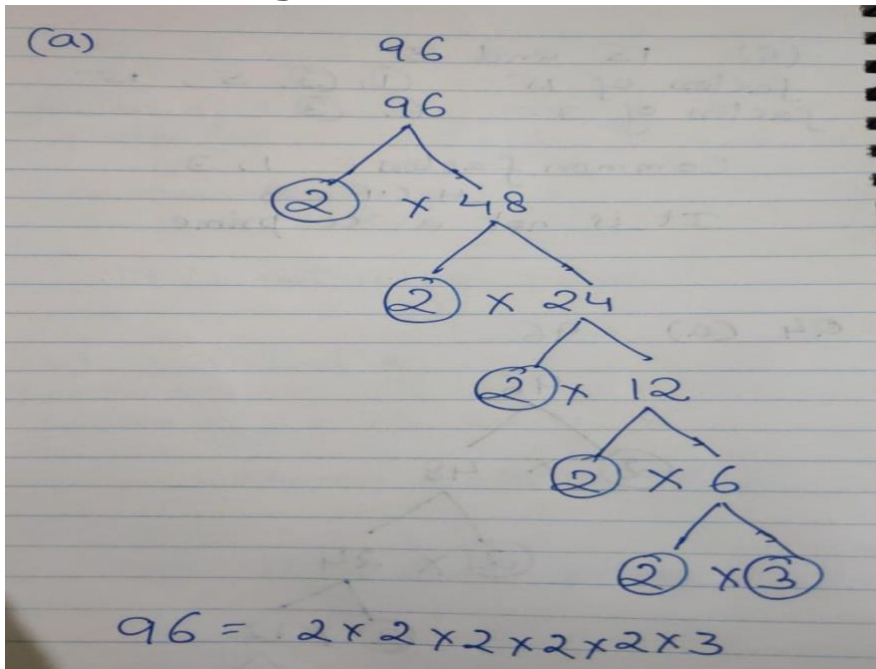 (a) 96
96
2 × 48
2 × 24
2 × 12
2 × 6
2 × 3
96 = 2 × 2 × 2 × 2 × 2 × 3